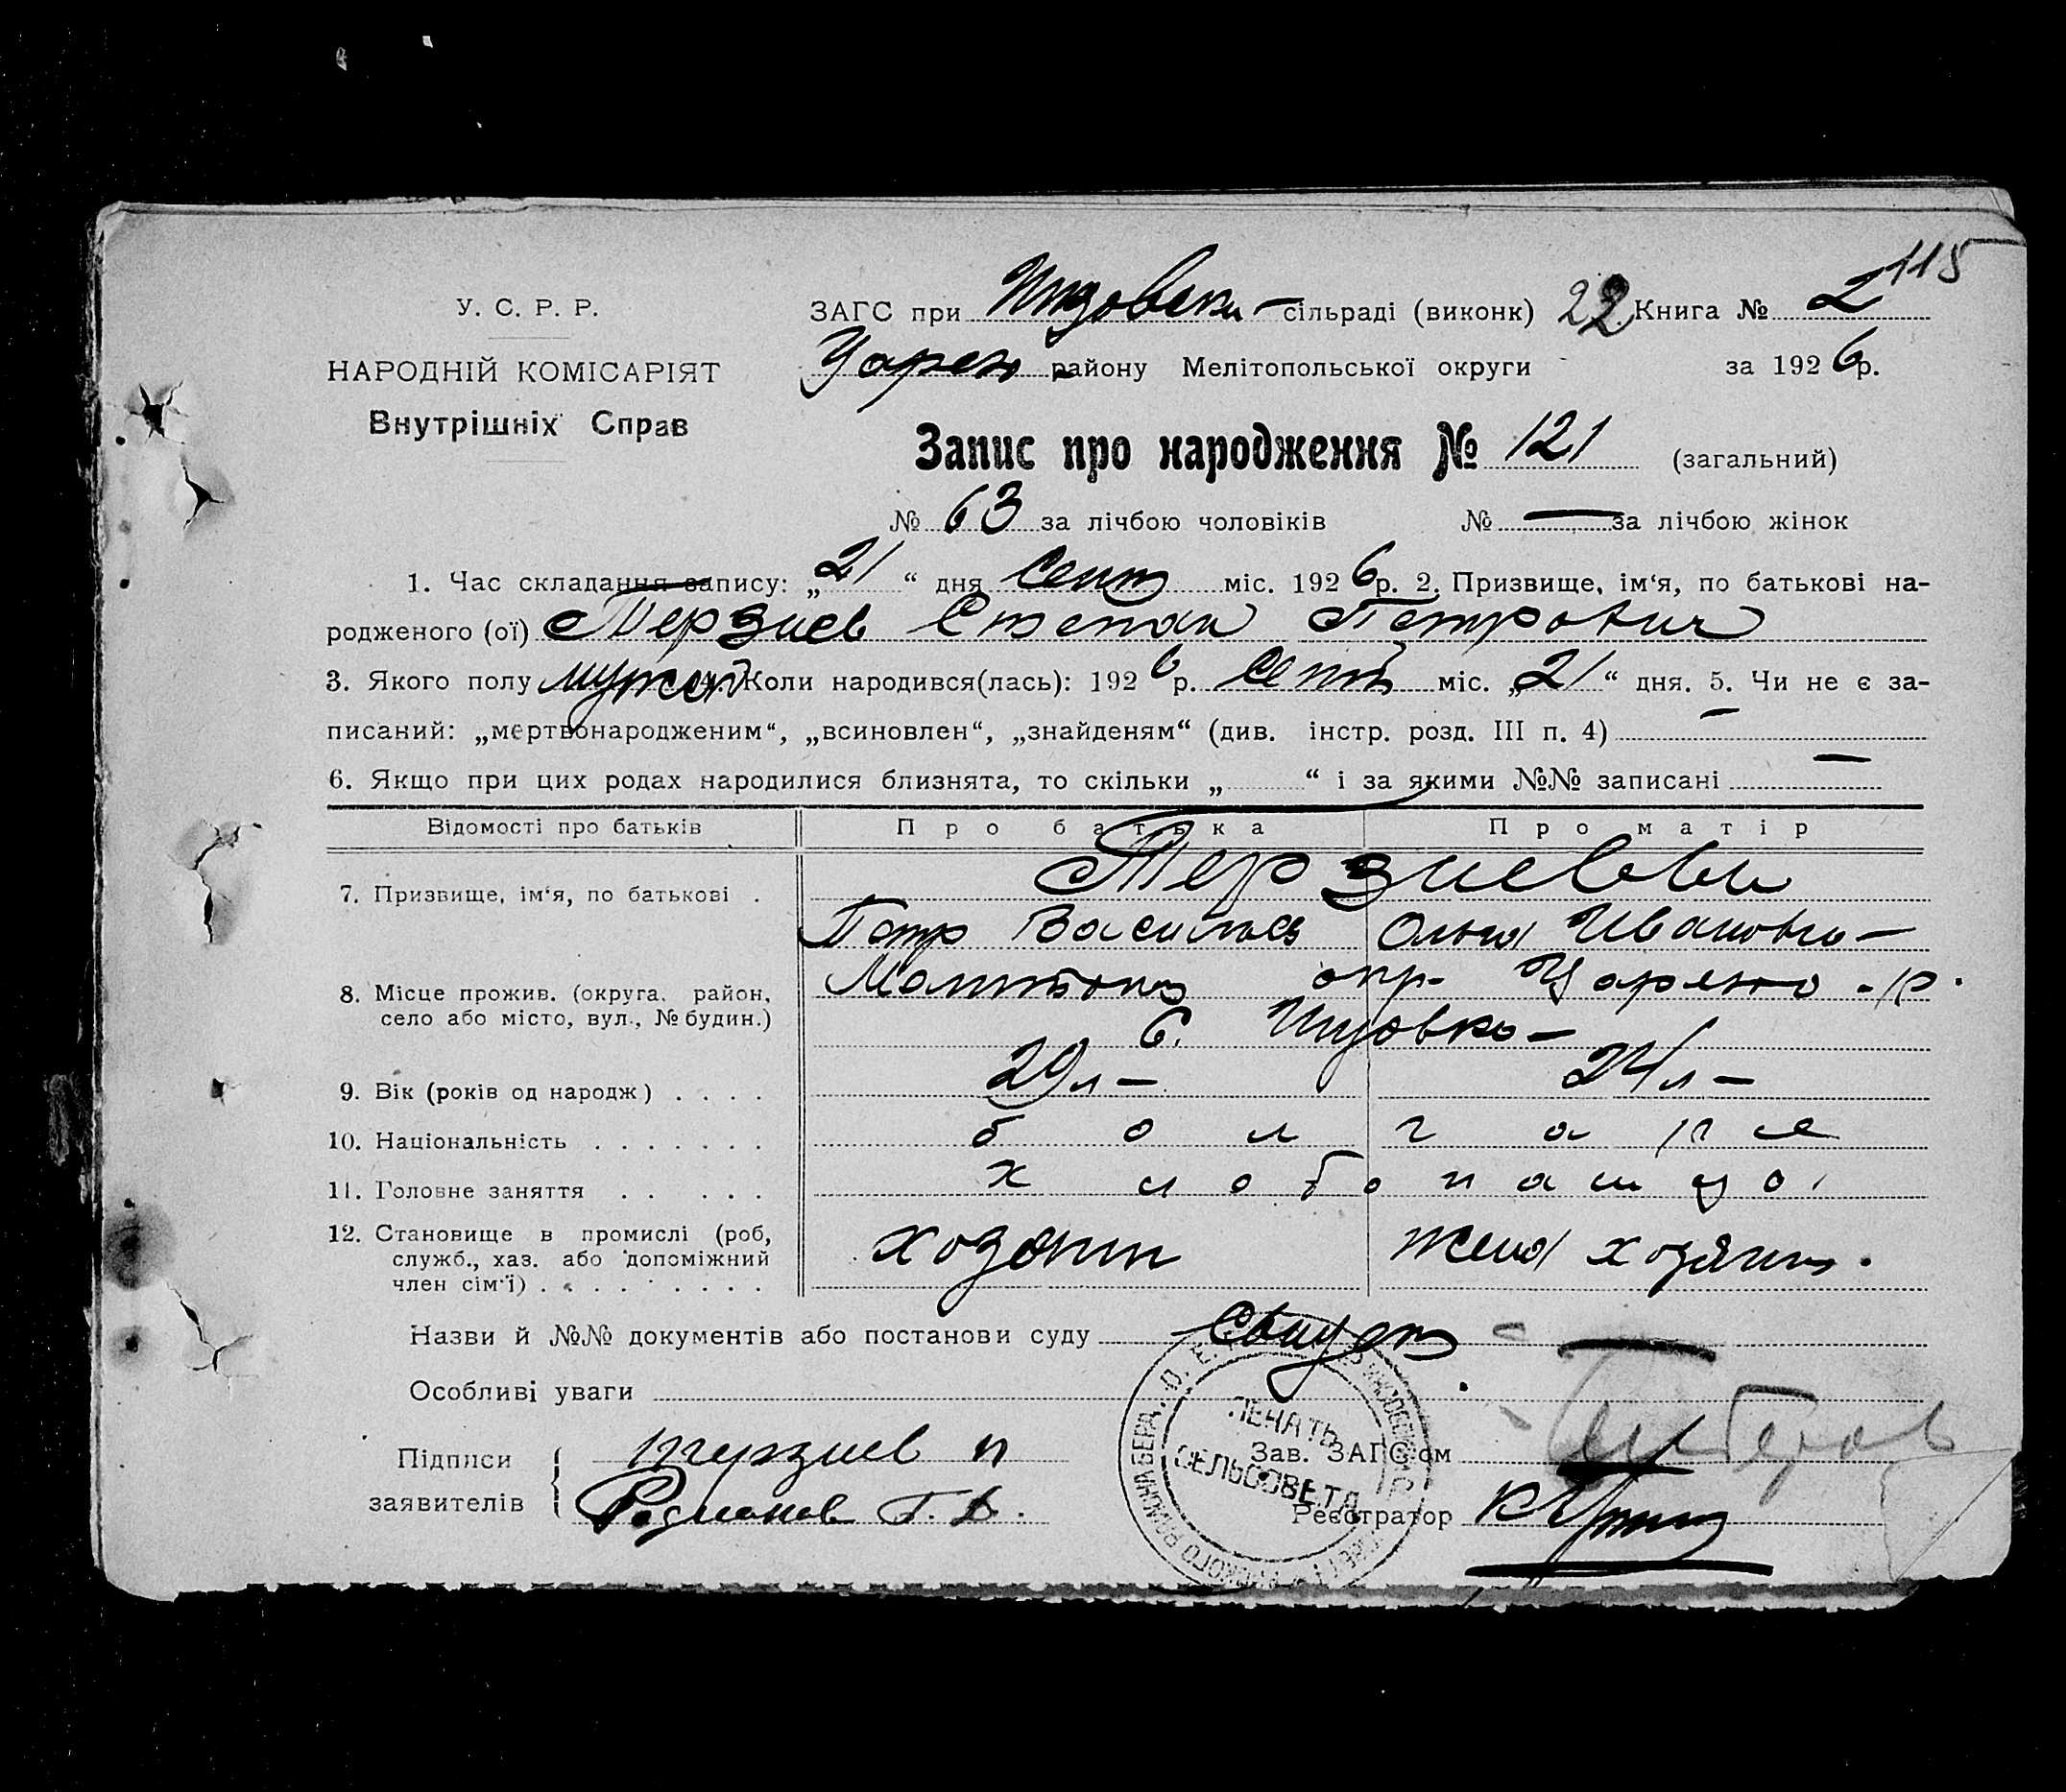 115
У. С. Р. Р.
НАРОДНІЙ КОМІСАРІЯТ
Внутрішніх Справ
ЗАГС при Інзовски сільраді (виконк) 22 Книга № 2
Царев району Мелітопольської округи за 1926 р.
Запис про народження № 121 (загальний)
№ 63 за лічбою чоловіків № — за лічбою жінок
1. Час складання запису: „21“ дня Сент міс. 1926 р. 2. Призвище, ім‘я, по батькові на-
родженого (ої) Терзиев Степан Петрович
3. Якого полу мужск 4. Коли народився(лась): 1926 р. Сент міс. „21“ дня. 5. Чи не є за-
писаний: „мертвонародженим“, „всиновлен“, „знайденям“ (див. інстр. розд. III п. 4) —
6. Якщо при цих родах народилися близнята, то скільки „ “ і за якими №№ записані —
Відомості про батьків Про батька Про матір
7. Призвище, ім‘я, по батькові . Терзиевы
Петр Васильев Ольга Ивановна
8. Місце прожив. (округа, район, окр. р.
село або місто, вул., № будин.) с.
9. Вік (років од народж) . . . . 29 л — 24 л —
10. Національність . . . . . . . болгаре
11. Головне заняття . . . . . хлебопашцы
12. Становище в промислі (роб,
служб., хаз. або допоміжний хозяин жена хозяина.
член сім‘ї) . . . . . . . .
Назви й №№ документів або постанови суду
Особливі уваги
Підписи Терзиев П
заявителів Родионов Г. Д.
ПЕЧАТЬ
СЕЛЬСОВЕТА
Зав. ЗАГС‘ом
Реєстратор